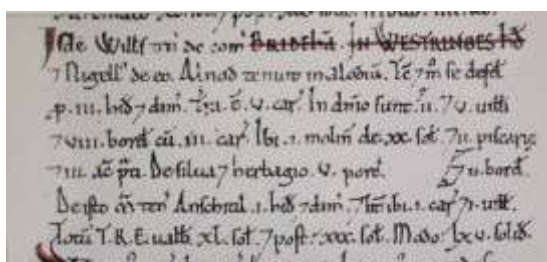 Wills ten de com BRIDEHĀ. IN WESTRINGES HD
7 Nigell' de eo. Alnod tenuit in alodiū. Tc̄ 7 m̄ se defd
p. III. hid 7 dim. Tra. ē. v. car. In dn̄io sunt. II. 7 v. uilli
7 VIII. bord cū. III. car. Ibi. I. molin̄ de. xx. sol. 7 II. piscarię
7 III. ac̄ p̄ti. De silua 7 herbagio. v. porc̄. 7 II. bord.
De isto m̄ ten' Anschral. I. hid 7 dim. 7 ht̄ ibi. I. car 7. I. uill.
Totū T.R.E. ualb̄ xL. sol. 7 post: xxx. sol. Modo. Lxv. solid.